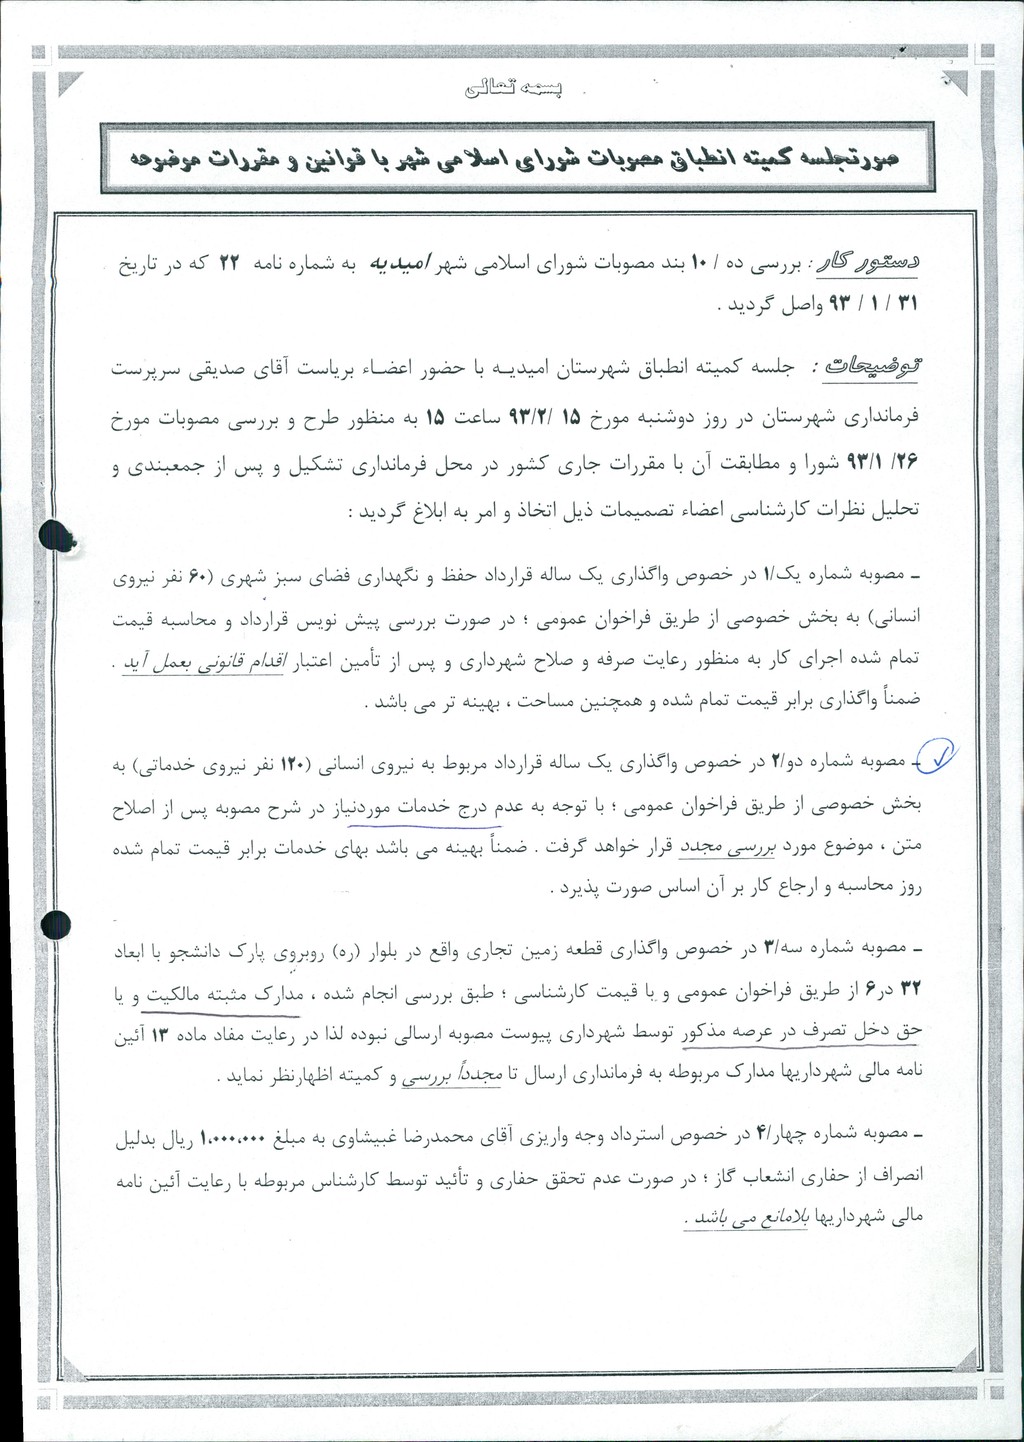 بسمه تعالی
صورتجلسه کمیته انطباق مصوبات شورای اسلامی شهر با قوانین و مقررات موضوعه
دستور کار : بررسی ده / ۱۰ بند مصوبات شورای اسلامی شهر امیدیه به شماره نامه ۲۲ که در تاریخ
۳۱ / ۱ / ۹۳ واصل گردید .
توضیحات : جلسه کمیته انطباق شهرستان امیدیه با حضور اعضاء بریاست آقای صدیقی سرپرست
فرمانداری شهرستان در روز دوشنبه مورخ ۱۵ /۹۳/۲ ساعت ۱۵ به منظور طرح و بررسی مصوبات مورخ
۲۶/ ۹۳/۱ شورا و مطابقت آن با مقررات جاری کشور در محل فرمانداری تشکیل و پس از جمعبندی و
تحلیل نظرات کارشناسی اعضاء تصمیمات ذیل اتخاذ و امر به ابلاغ گردید :
ـ مصوبه شماره یک/۱ در خصوص واگذاری یک ساله قرارداد حفظ و نگهداری فضای سبز شهری (۶۰ نفر نیروی
انسانی) به بخش خصوصی از طریق فراخوان عمومی ؛ در صورت بررسی پیش نویس قرارداد و محاسبه قیمت
تمام شده اجرای کار به منظور رعایت صرفه و صلاح شهرداری و پس از تأمین اعتبار اقدام قانونی بعمل آید .
ضمناً واگذاری برابر قیمت تمام شده و همچنین مساحت ، بهینه تر می باشد .
ـ مصوبه شماره دو/۲ در خصوص واگذاری یک ساله قرارداد مربوط به نیروی انسانی (۱۲۰ نفر نیروی خدماتی) به
بخش خصوصی از طریق فراخوان عمومی ؛ با توجه به عدم درج خدمات موردنیاز در شرح مصوبه پس از اصلاح
متن ، موضوع مورد بررسی مجدد قرار خواهد گرفت . ضمناً بهینه می باشد بهای خدمات برابر قیمت تمام شده
روز محاسبه و ارجاع کار بر آن اساس صورت پذیرد .
ـ مصوبه شماره سه/۳ در خصوص واگذاری قطعه زمین تجاری واقع در بلوار (ره) روبروی پارک دانشجو با ابعاد
۳۲ در۶ از طریق فراخوان عمومی و با قیمت کارشناسی ؛ طبق بررسی انجام شده ، مدارک مثبته مالکیت و یا
حق دخل تصرف در عرصه مذکور توسط شهرداری پیوست مصوبه ارسالی نبوده لذا در رعایت مفاد ماده ۱۳ آئین
نامه مالی شهرداریها مدارک مربوطه به فرمانداری ارسال تا مجدداً بررسی و کمیته اظهارنظر نماید .
ـ مصوبه شماره چهار/۴ در خصوص استرداد وجه واریزی آقای محمدرضا غبیشاوی به مبلغ ۱،۰۰۰،۰۰۰ ریال بدلیل
انصراف از حفاری انشعاب گاز ؛ در صورت عدم تحقق حفاری و تأئید توسط کارشناس مربوطه با رعایت آئین نامه
مالی شهرداریها بلامانع می باشد .